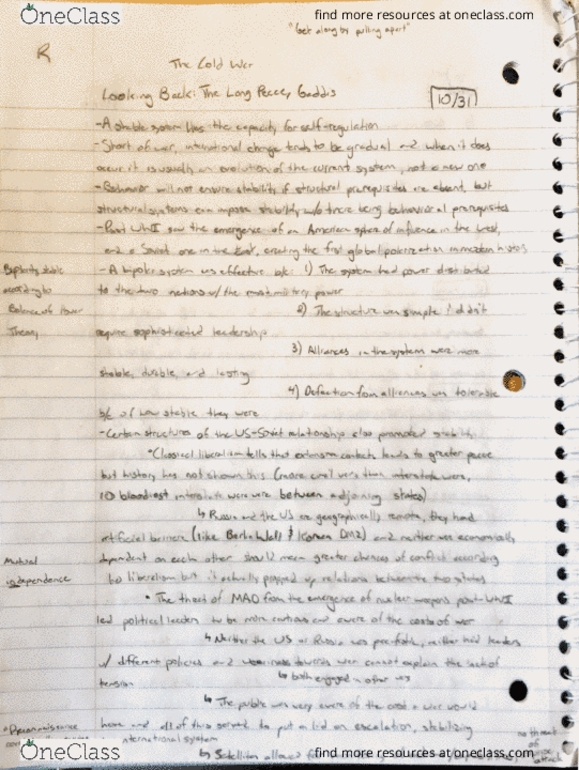 OneClass
find more resources at oneclass.com
"Get along by pulling apart"
R
The Cold War
Looking Back: The Long Peace, Gaddis
10/31
-A stable system has the capacity for self-regulation
-Short of war, international change tends to be gradual and when it does
occur it is usually an evolution of the current system, not a new one
-Behavior will not ensure stability if structural prerequisites are absent, but
structural systems can impose stability w/o there being behavioral prerequisites
-Post WWII saw the emergence of an American sphere of influence in the West,
and a Soviet one in the East, creating the first global polarization in modern history
Bipolarity stable
according to
Balance of Power
Theory
-A bipolar system was effective b/c: 1) The system had power distributed
to the two nations w/ the most military power
2) The structure was simple & didn't
require sophisticated leadership
3) Alliances in the system were more
stable, durable, and lasting
4) Defection from alliances was tolerable
b/c of how stable they were
-Certain structures of the US-Soviet relationship also promoted stability
•Classical liberalism tells that extensive contacts leads to greater peace
but history has not shown this (more civil wars than interstate wars,
10 bloodiest interstate wars were between adjoining states)
↳ Russia and the US are geographically remote, they had
artificial barriers (like Berlin Wall & Korean DMZ) and neither was economically
Mutual
independence
dependent on each other should mean greater chances of conflict according
to liberalism but it actually propped up relations between the two states
• The threat of MAD from the emergence of nuclear weapons post-WWII
led political leaders to be more cautious and aware of the costs of war
↳ Neither the US or Russia was pacifistic, neither had leaders
w/ different policies and weariness towards war cannot explain the lack of
tension
↳ both engaged in other wars
↳ The public was very aware of the cost a war would
have and all of this served to put a lid on escalation, stabilizing
international system
•Reconnaissance
no threat
of
attack
↳ Satellites allowed
OneClass
find more resources at oneclass.com